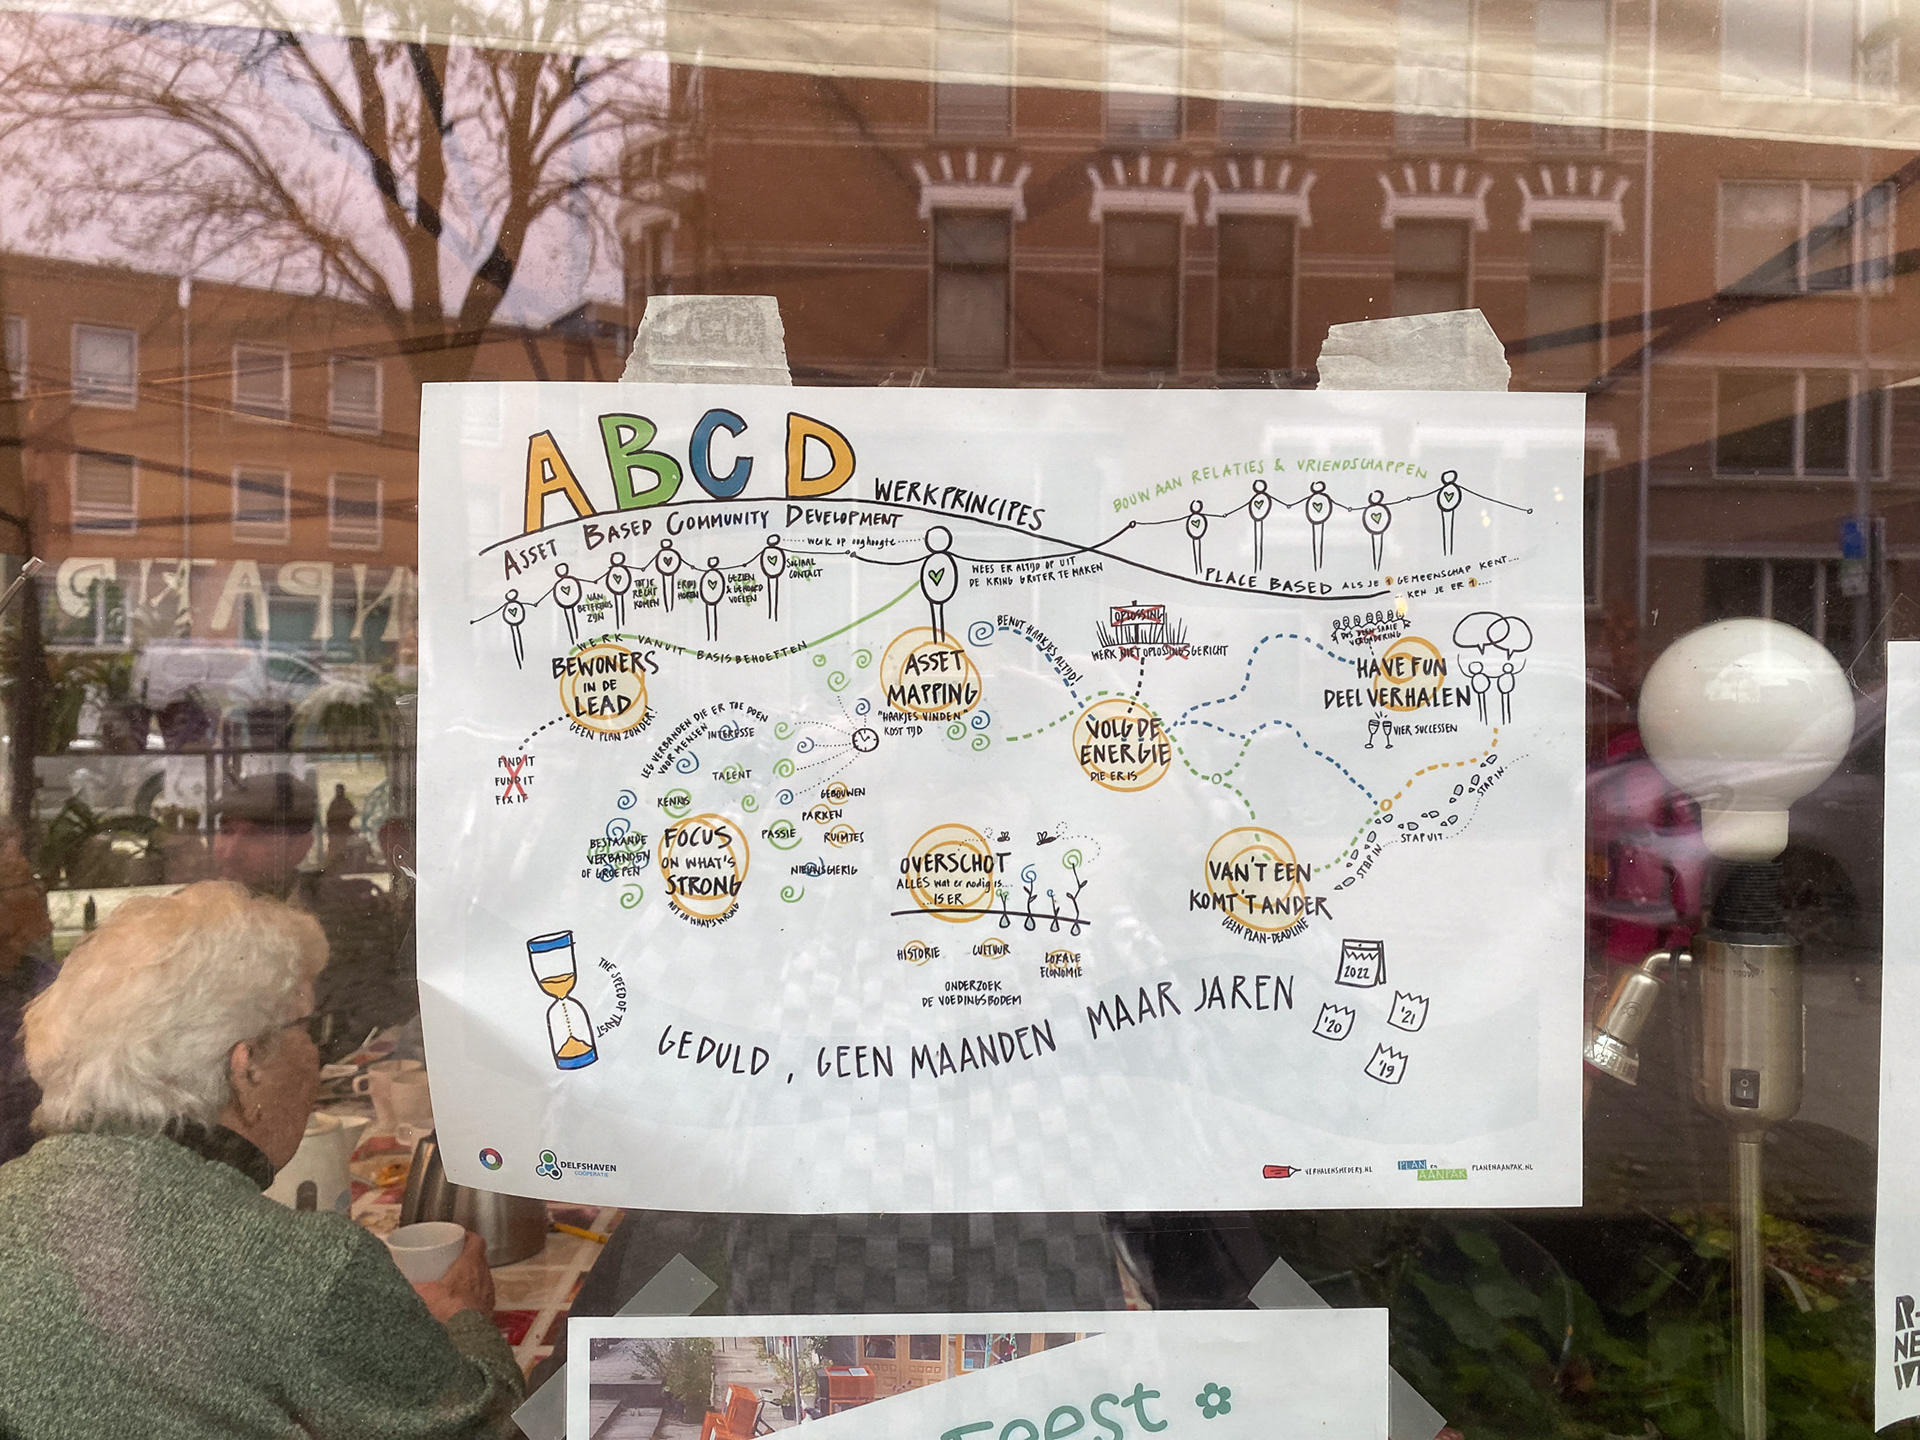 ABCD WERKPRINCIPES
ASSET BASED COMMUNITY DEVELOPMENT
werk op ooghoogte
BOUW AAN RELATIES & VRIENDSCHAPPEN
WEES ER ALTIJD OP UIT
DE KRING GROTER TE MAKEN
PLACE BASED ALS JE 1 GEMEENSCHAP KENT...
KEN JE ER 1....
VAN
BETEKENIS
ZIJN
TOT JE
RECHT
KOMEN
ERBIJ
HOREN
GEZIEN
& GEHOORD
VOELEN
SOCIAAL
CONTACT
WERK VANUIT BASISBEHOEFTEN
BEWONERS
IN DE
LEAD
GEEN PLAN ZONDER!
FIND IT
FUND IT
FIX IT
ASSET
MAPPING
"HAAKJES VINDEN"
KOST TIJD
BENUT HAAKJES ALTIJD!
OPLOSSING
WERK NIET OPLOSSINGSGERICHT
VOLG DE
ENERGIE
DIE ER IS
DUS GEEN SAAIE
VERGADERING
HAVE FUN
DEEL VERHALEN
VIER SUCCESSEN
LEG VERBANDEN DIE ER TOE DOEN
VOOR MENSEN
INTERESSE
TALENT
KENNIS
PASSIE
GEBOUWEN
PARKEN
RUIMTES
NIEUWSGIERIG
BESTAANDE
VERBANDEN
OF GROEPEN
FOCUS
ON WHAT'S
STRONG
NOT ON WHAT'S WRONG
OVERSCHOT
ALLES wat er nodig is...
...IS ER
HISTORIE
CULTUUR
LOKALE
ECONOMIE
ONDERZOEK
DE VOEDINGSBODEM
VAN'T EEN
KOMT 'T ANDER
GEEN PLAN-DEADLINE
STAP IN
STAP UIT
STAP IN
THE SPEED OF TRUST
GEDULD, GEEN MAANDEN MAAR JAREN
2022
'20
'21
'19
DELFSHAVEN
COÖPERATIE
VERHALENSMEDERIJ.NL
PLAN en
AANPAK
PLANENAANPAK.NL
Feest